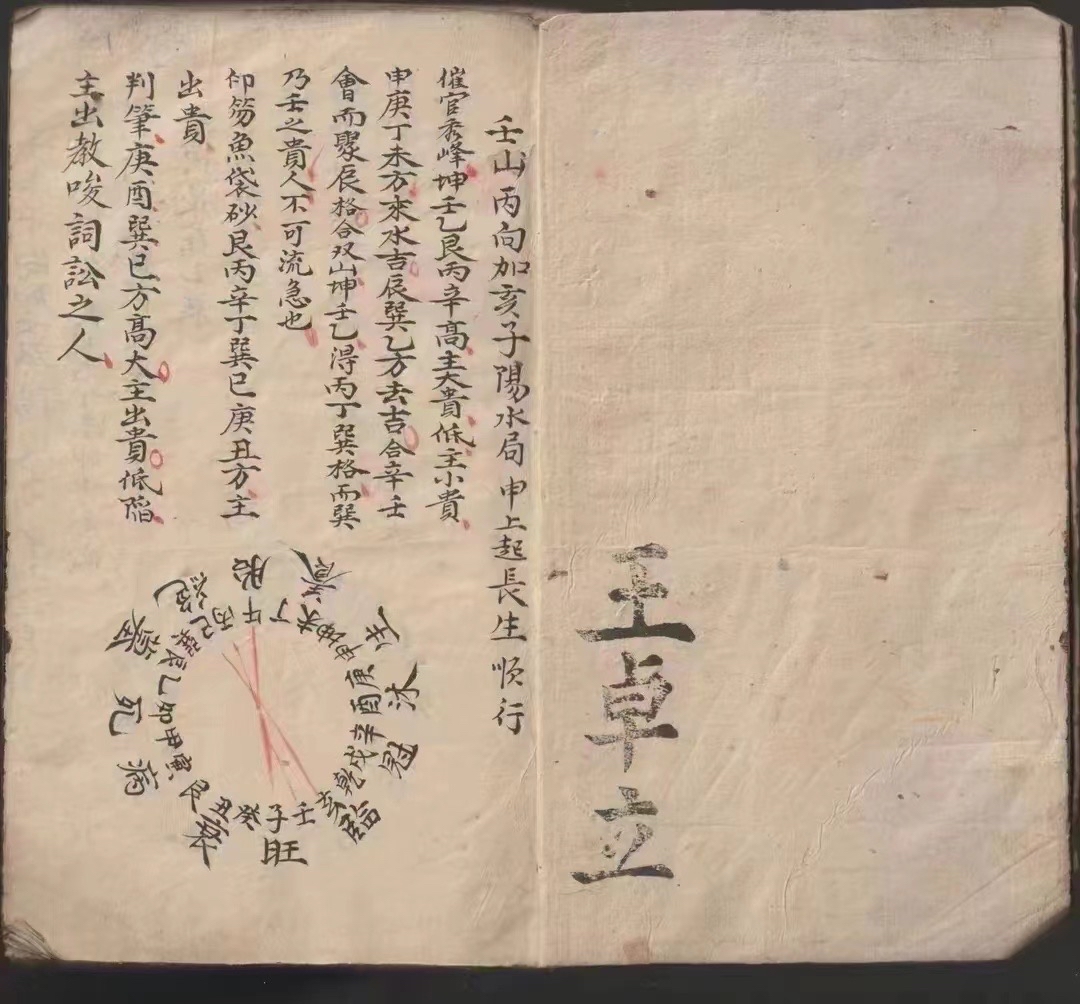 王卓立
壬山丙向加亥子陽水局申上起長生順行
催官秀峰坤壬乙艮丙辛高主大貴低主小貴
申庚丁未方來水吉辰巽乙方去吉合辛壬
會而聚辰格合双山坤壬乙得丙丁巽格而巽
乃壬之貴人不可流急也
印笏魚袋砂艮丙辛丁巽巳庚丑方主
出貴
判筆庚酉巽巳方高大主出貴低陷
主出教唆詞訟之人
胎養生沐冠臨旺衰病死墓絕
午丁未坤申庚酉辛戌乾亥壬子癸丑艮寅甲卯乙辰巽巳丙